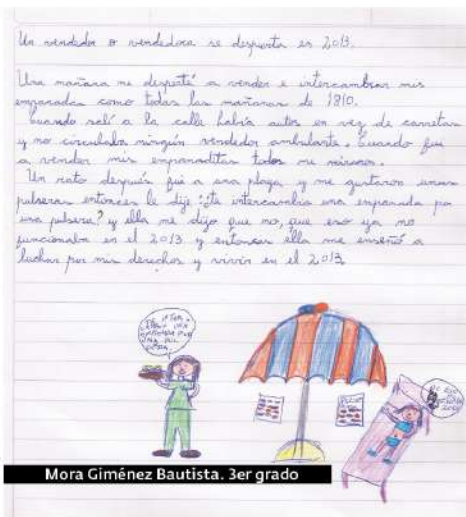 Un vendedor o vendedora se despierta en 2013.
Una mañana me desperté a vender e intercambiar mis
empanadas como todas las mañanas de 1810.
Cuando salí a la calle había autos en vez de carretas
y no circulaba ningún vendedor ambulante. Cuando fui
a vender mis empanaditas todos me miraron.
Un rato después fui a una playa y me gustaron unas
pulseras entonces le dije "¿te intercambio una empanada por
una pulsera? y ella me dijo que no, que eso ya no
funcionaba en el 2013 y entonces ella me enseñó a
luchar por mis derechos y vivir en el 2013.
Mora Giménez Bautista. 3er grado